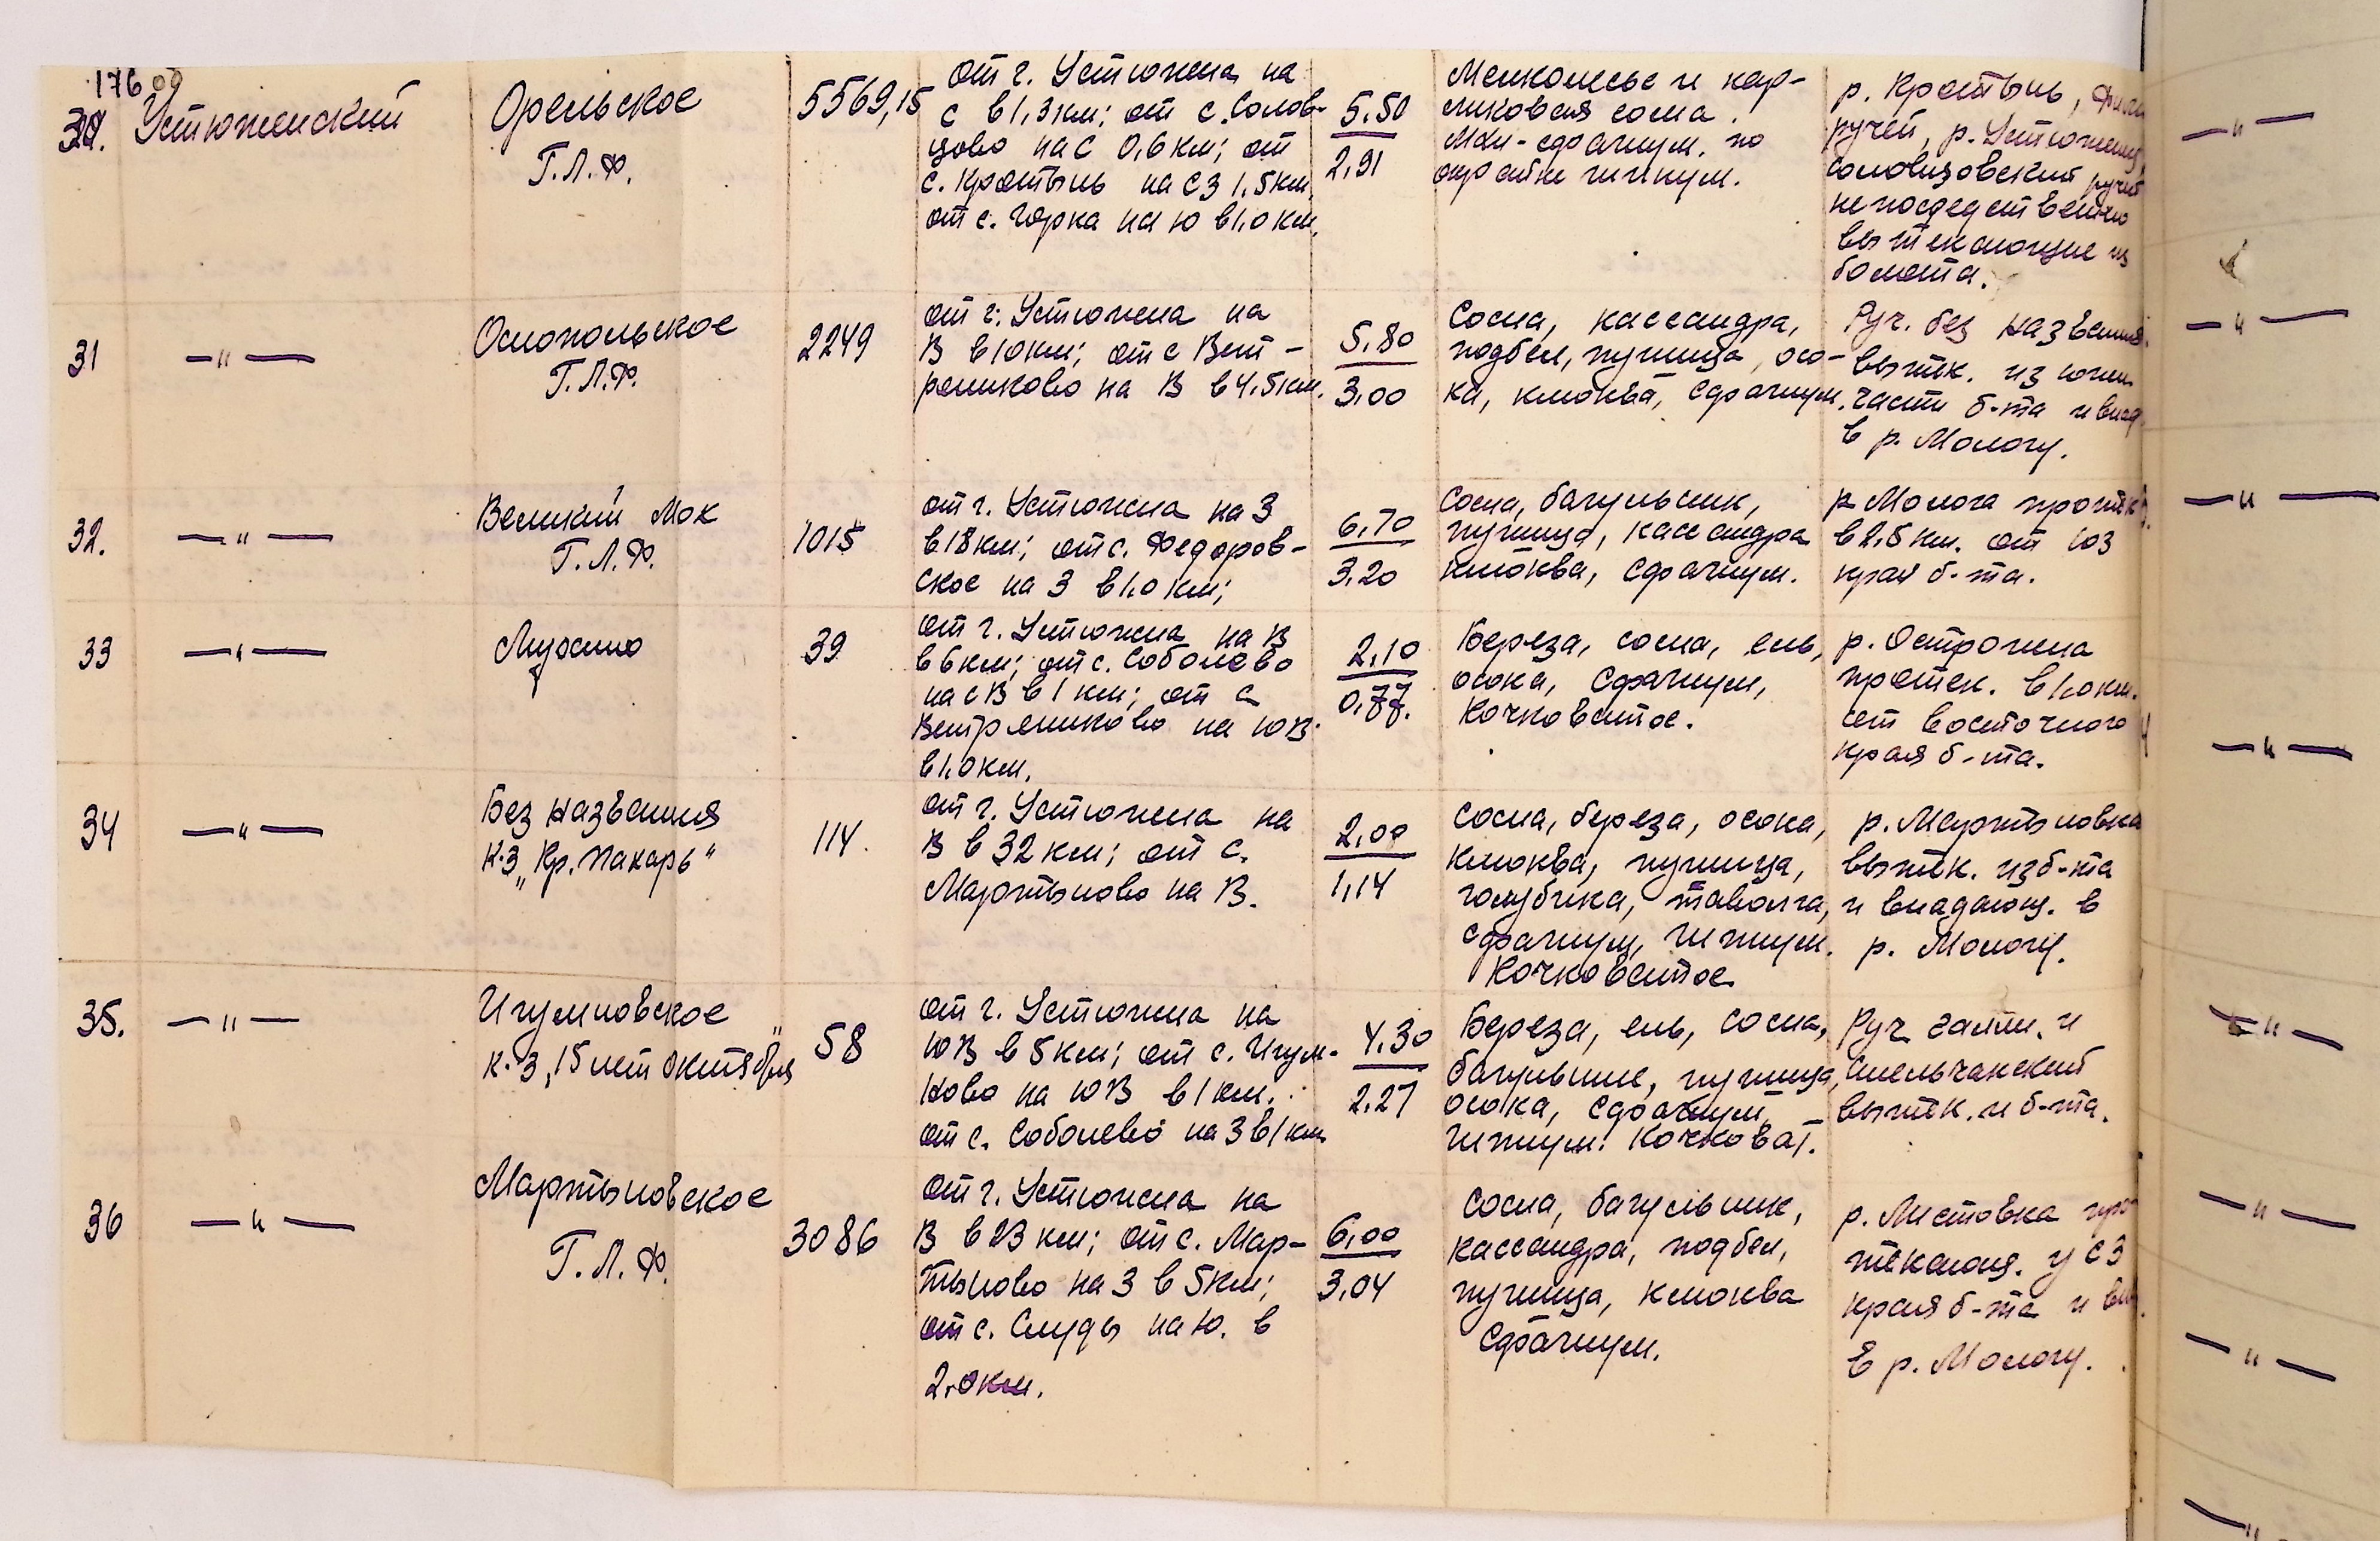 176 09
30. Устюженский
Орельское
Г.Л.Ф.
5569,15
от г. Устюжна на
С в 1,3 км; от с. Солов-
цово на С 0,6 км; от
с. Кротынь на СЗ 1,5 км,
от с. Горка на Ю в 1,0 км.
5.50
2,91
Мелколесье и кар-
ликовая сосна.
Мхи - сфагнум. по
окрайне гипнум.
р. Кротынь,
ручей, р. Устюжница,
Соловцовский ручей
непосредственно
вытекающие из
болота.
31
—"—
Ослопольское
Г.Л.Ф.
2249
от г. Устюжна на
В в 10 км; от с Вет-
ренниково на В в 4,5 км.
5.80
3.00
Сосна, кассандра,
подбел, пушица, осо-
ка, клюква, сфагнум.
Руч. без названия
вытек. из южн.
части б-та и впад.
в р. Мологу.
—"—
32.
—"—
Великий Мох
Г.Л.Ф.
1015
от г. Устюжна на З
в 18 км; от с. Федоров-
ское на З в 1.0 км;
6.70
3.20
Сосна, багульник,
пушица, кассандра
клюква, сфагнум.
р. Молога протек.
в 2.5 км. от ЮЗ
края б-та.
—"—
33
—"—
39
от г. Устюжна на В
в 6 км; от с. Соболево
на СВ в 1 км; от с
Ветренниково на ЮВ
в 1.0 км.
2.10
0.77.
Береза, сосна, ель,
осока, сфагнум,
Кочковатое.
р. Острожина
протек. в 1.0 км.
от восточного
края б-та.
—"—
34
—"—
Без названия
К-з „Кр. Пахарь"
114.
от г. Устюжна на
В в 32 км; от с.
Мартыново на В.
2.00
1,14
Сосна, береза, осока,
клюква, пушица,
голубика, таволга,
сфагнум, гипнум.
Кочковатое
р. Мартыновка
вытек. из б-та
и впадающ. в
р. Мологу.
35.
—"—
Игумновское
к-з „15 лет Октября"
58
от г. Устюжна на
ЮВ в 5 км; от с. Игум-
ново на ЮВ в 1 км.
от с. Соболево на З в 1 км
4.30
2.27
Береза, ель, сосна,
багульник, пушица,
осока, сфагнум,
гипнум. Кочковат.
Руч. и
вытек. и б-та.
—"—
36
—"—
Мартыновское
Г.Л.Ф.
3086
от г. Устюжна на
В в 23 км; от с. Мар-
тыново на З в 5 км;
от с. Слуды на Ю. в
2.0 км.
6.00
3.04
Сосна, багульник,
кассандра, подбел,
пушица, клюква
Сфагнум.
р. Листовка про-
текающ. у СЗ
края б-та и вп.
в р. Мологу.
—"—
—"—